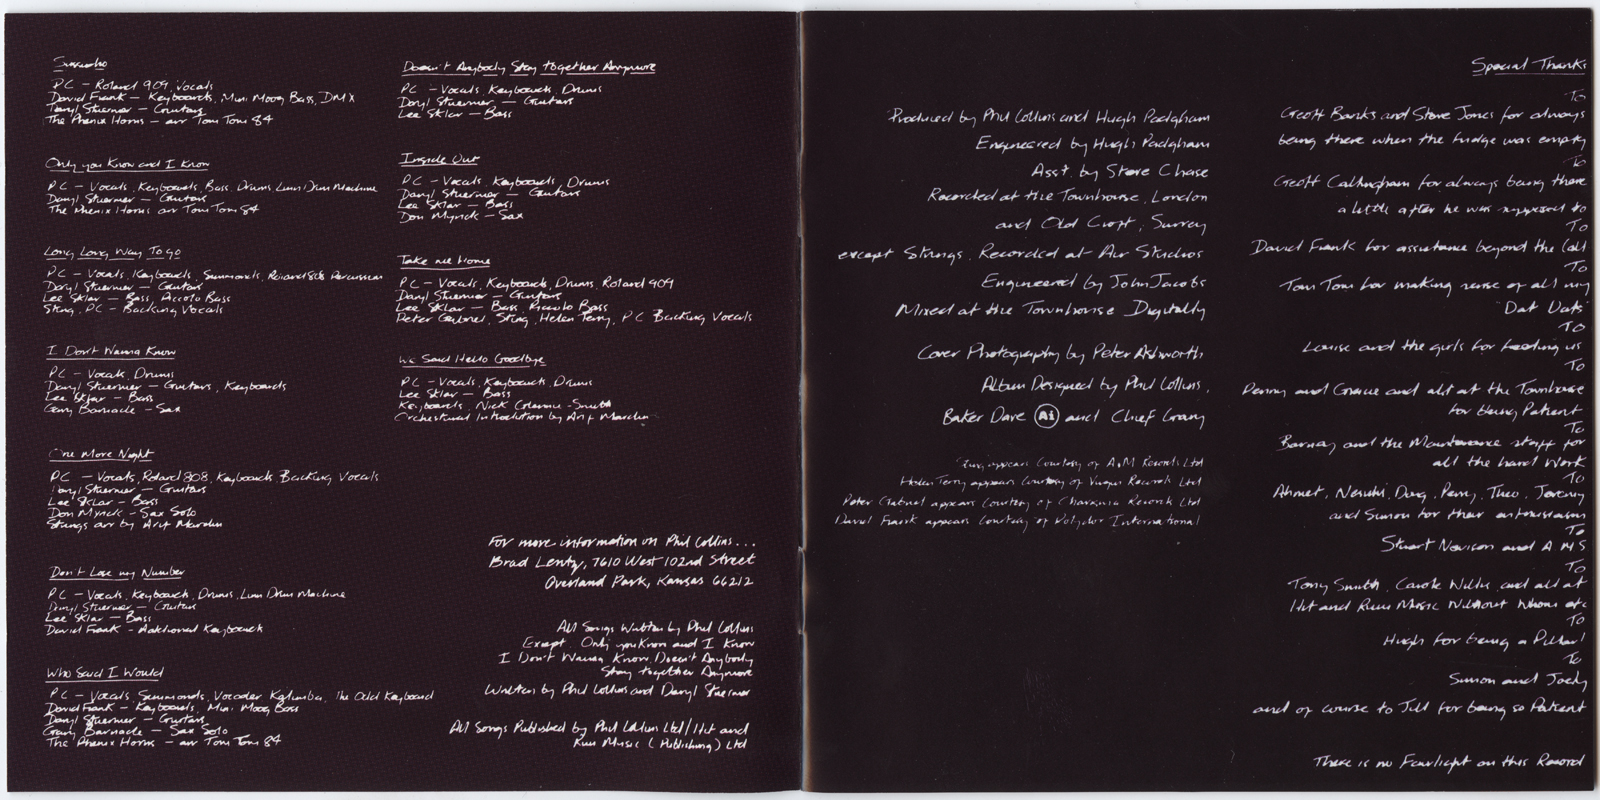 Sussudio
PC – Roland 909, Vocals
David Frank – Keyboards, Mini Moog Bass, DMX
Daryl Stuermer – Guitars
The Phenix Horns – arr Tom Tom 84
Only you Know and I Know
PC – Vocals, Keyboards, Bass, Drums Linn Drum Machine
Daryl Stuermer – Guitars
The Phenix Horns arr Tom Tom 84
Long Long Way To go
PC – Vocals, Keyboards, Simmonds, Roland 808 Percussion
Daryl Stuermer – Guitar
Lee Sklar – Bass, Piccolo Bass
Sting, PC – Backing Vocals
I Don't Wanna Know
PC – Vocals, Drums
Daryl Stuermer – Guitars, Keyboards
Lee Sklar – Bass
Gary Barnacle – Sax
One More Night
PC – Vocals, Roland 808, Keyboards Backing Vocals
Daryl Stuermer – Guitars
Lee Sklar – Bass
Don Myrick – Sax Solo
Strings arr by Arif Mardin
Don't Lose my Number
PC – Vocals, Keyboards, Drums, Linn Drum Machine
Daryl Stuermer – Guitars
Lee Sklar – Bass
David Frank – Additional Keyboards
Who Said I Would
PC – Vocals, Simmonds, Vocoder Kalimba, The Odd Keyboard
David Frank – Keyboards, Mini Moog Bass
Daryl Stuermer – Guitars
Gary Barnacle – Sax Solo
The Phenix Horns – arr Tom Tom 84
Doesn't Anybody Stay together Anymore
PC – Vocals, Keyboards, Drums
Daryl Stuermer – Guitars
Lee Sklar – Bass
Inside Out
PC – Vocals, Keyboards, Drums
Daryl Stuermer – Guitars
Lee Sklar – Bass
Don Myrick – Sax
Take me Home
PC – Vocals, Keyboards, Drums, Roland 909
Daryl Stuermer – Guitars
Lee Sklar – Bass Piccolo Bass
Peter Gabriel, Sting, Helen Terry, PC Backing Vocals
We Said Hello Goodbye
PC – Vocals, Keyboards, Drums
Lee Sklar – Bass
Keyboards, Nick Glennie-Smith
Orchestural Introduction by Arif Mardin
For more information on Phil Collins...
Brad Lentz, 7610 West 102nd Street
Overland Park, Kansas 66212
All Songs Written by Phil Collins
Except Only you Know and I Know
I Don't Wanna Know, Doesn't Anybody
Stay together Anymore
Written by Phil Collins and Daryl Stuermer
All Songs Published by Phil Collins Ltd/Hit and
Run Music (Publishing) Ltd
Produced by Phil Collins and Hugh Padgham
Engineered by Hugh Padgham
Asst. by Steve Chase
Recorded at the Townhouse, London
and Old Croft, Surrey
except Strings, Recorded at Air Studios
Engineered by John Jacobs
Mixed at the Townhouse Digitally
Cover Photography by Peter Ashworth
Album Designed by Phil Collins,
Baker Dave Ai and Chief Grany
Sting appears Courtesy of A&M Records Ltd
Helen Terry appears Courtesy of Virgin Records Ltd
Peter Gabriel appears Courtesy of Charisma Records Ltd
David Frank appears Courtesy of Polydor International
Special Thanks
To
Geoff Banks and Steve Jones for always
being there when the fridge was empty
To
Geoff Callingham for always being there
a little after he was supposed to
To
David Frank for assistance beyond the Call
To
Tom Tom for making sense of all my
"Dat Dats"
To
Louise and the girls for feeding us
To
Penny and Gracie and all at the Townhouse
for being Patient
To
Barney and the Maintenance staff for
all the hard Work
To
Ahmet, Nesuhi, Doug, Perry, Theo, Jeremy
and Simon for their enthusiasm
To
Stuart Newison and A M S
To
Tony Smith, Carole Willis and all at
Hit and Run Music Without Whom etc
To
Hugh for being a Pillar!
To
Simon and Joely
and of course to Jill for being so Patient
There is no Fairlight on this Record